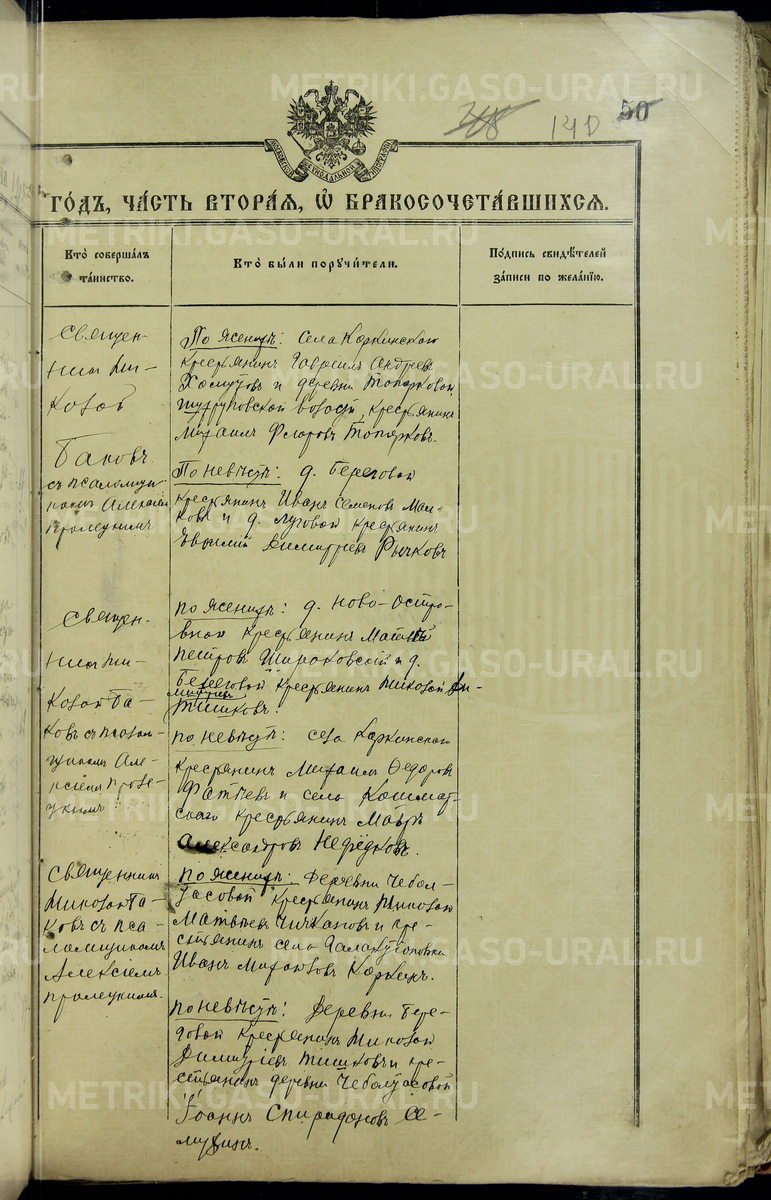 METRIKI.GASO-URAL.RU
50
140
МОСКОВСКОЙ СѴНОДАЛЬНОЙ ТИПОГРАФІИ
ГО́ДЪ, ЧА́СТЬ ВТОРА́Я, Ѡ҆ БРАКОСОЧЕТА́ВШИХСЯ.
Кто̀ соверша́лъ
та́инство.
Кто̀ бы́ли поручи́тели.
По́дпись свидѣ́телей
за́писи по жела́нїю.
Священ-
никъ Ни-
колай
Баковъ
съ псаломщи-
комъ Алексіемъ
По женихѣ: села Каркинскаго
крестьянинъ Гавріилъ Андреевъ
Хомутовъ и деревни Топорковой
волости, крестьянинъ
Михаилъ Топорковъ.
По невѣстѣ: д. Береговой
крестьянинъ Иванъ Семеновъ
и д. Луговой крестьянинъ
Евфимій Димитріевъ Рычковъ
Священ-
никъ Ни-
колай Ба-
ковъ съ псалом-
щикомъ Але-
ксіемъ
по женихѣ: д. Ново-Остро-
вной крестьянинъ Матвѣй
Петровъ Широковскій и д.
Береговой крестьянинъ Николай Ди-
митріевъ
Тишковъ.
по невѣстѣ: села Каркинскаго
крестьянинъ Михаилъ Федоровъ
и села
крестьянинъ Мавръ
Александровъ Нефедковъ.
Священникъ
Николай Ба-
ковъ съ пса-
ломщикомъ
Алексіемъ
по женихѣ: деревни Чебал-
тасовой крестьянинъ Николай
Матвѣевъ Чичкановъ и кре-
стьянинъ села
Иванъ Каркинъ.
по невѣстѣ: деревни Бере-
говой крестьянинъ Николай
Димитріевъ Тишковъ и кре-
стьянинъ деревни Чебалтасовой
Іоаннъ Спиридоновъ Се-